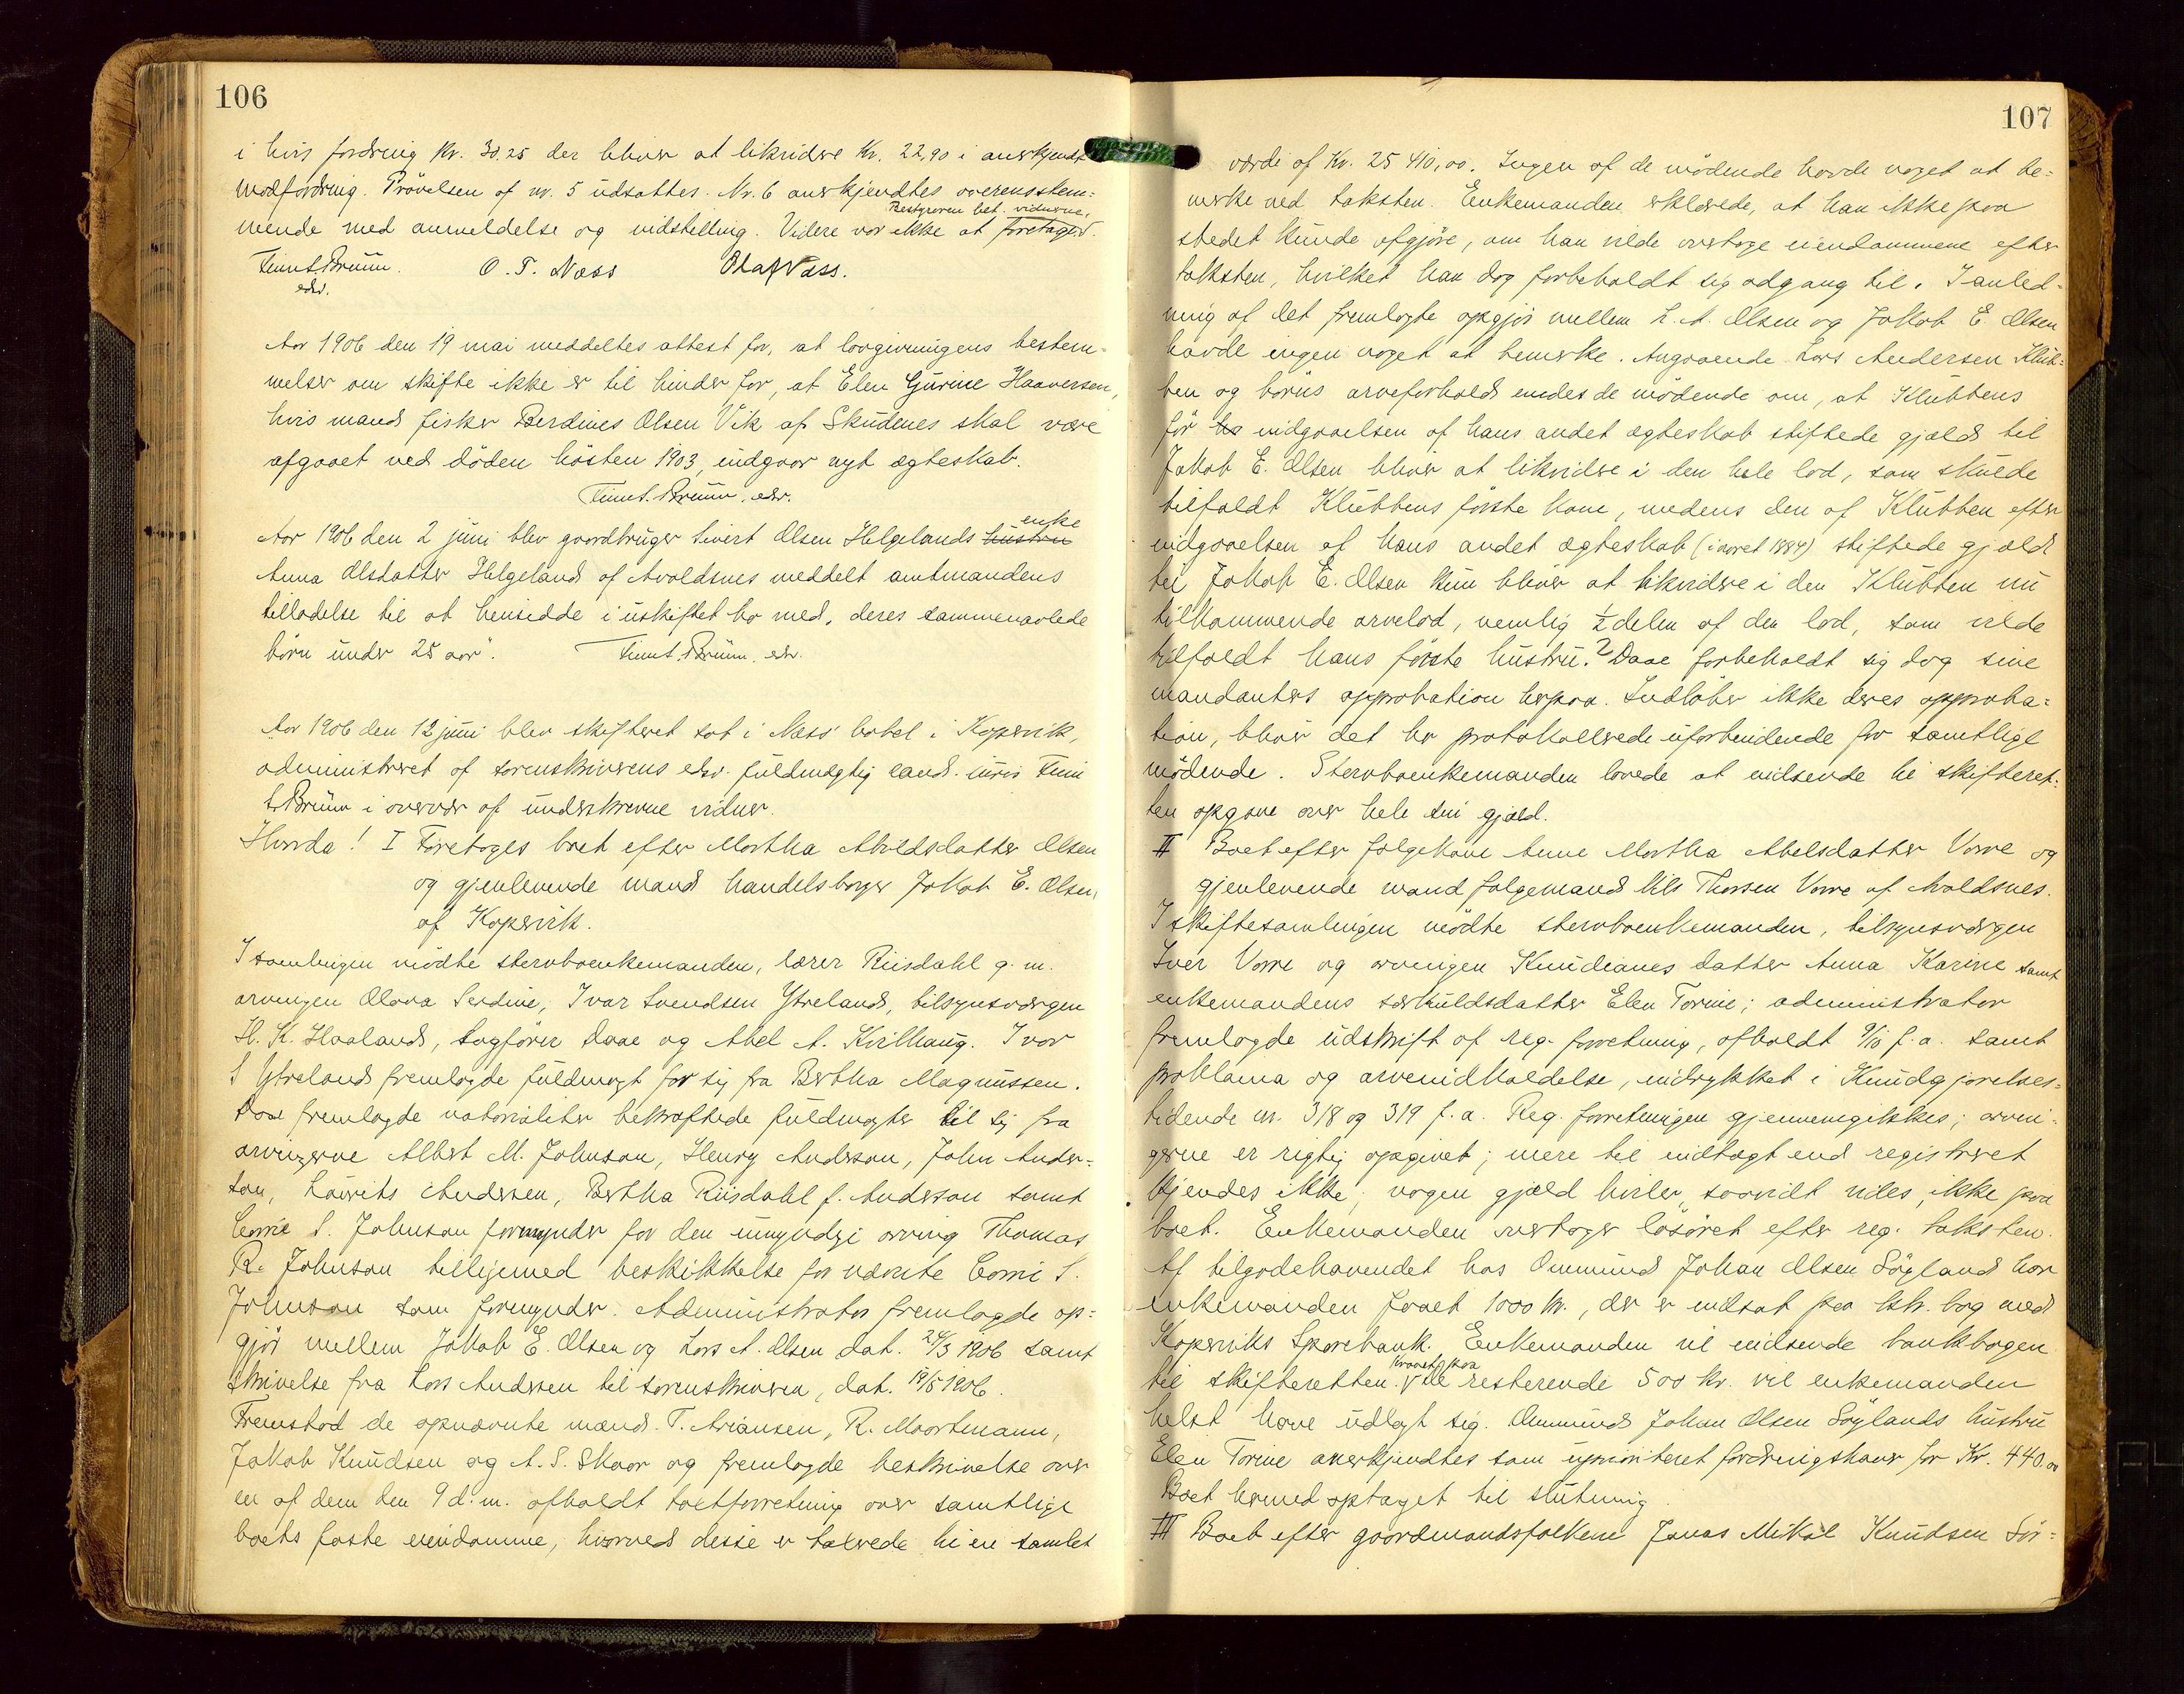 106
i hvis fordring kr. 30,25 der bliver at likvidere kr. 22,90 i anerkjendt
modfordring. Prövelsen af nr. 5 udsattes. Nr. 6 anerkjendtes overensstem-
Bestyreren bet. vidnerne.
mende med anmeldelse og indstilling. Videre var ikke at foretage.
Finn S. Brüun. O. T. Næss Olaf Næss.
edsv.
Aar 1906 den 19 mai meddeltes attest for, at lovgivningens bestem-
melser om skifte ikke er til hinder for, at Elen Gurine Haaversen,
hvis mand fisker Berdines Olsen Vik af Skudenes skal være
afgaaet ved döden hösten 1903, indgaar nyt ægteskab.
Finn S. Brüun, edsv.
enke
Aar 1906 den 2 juni blev gaardbruger Sivert Olsen Helgelands hustru
Anna Olsdatter Helgeland af Avaldsnes meddelt amtmandens
tilladelse til at hensidde i uskiftet bo med, deres sammenavlede
börn under 25 aar". Finn S. Brüun. edsv.
Aar 1906 den 12 juni blev skifteret sat i Næss' hotel i Kopervik,
administreret af sorenskriverens edsv. fuldmægtig cand. juris Finn
S. Brüun i overvær af underskrevne vidner.
Hvorda! I Foretoges boet efter Martha Abelsdatter Olsen
og gjenlevende mand handelsborger Jakob E. Olsen,
af Kopervik.
I samlingen mödte stervboenkemanden, lærer Riisdahl g. m.
arvingen Olava Serdine, Ivar Svendsen Ytreland, tilsynsværgen
H. K. Haaland, sagförer Daae og Abel A. Kvilhaug. Ivar
S Ytreland fremlagde fuldmagt for sig fra Bertha Magnussen.
Daae fremlagde notorialiter bekræftede fuldmagter til sig fra
arvingerne Albert M. Johnson, Henry Anderson, John Ander-
son, Laurits Andersen, Bertha Riisdahl f. Anderson samt
Corrie S. Johnson formynder for den umyndige arving Thomas
R. Johnson tilligemed beskikkelse for nævnte Corrie S.
Johnson som formynder. Administrator fremlagde op-
gjör mellem Jakob E. Olsen og Lars A. Olsen dat. 24/3 1906 samt
skrivelse fra Lars Andersen til sorenskriveren, dat. 19/5 1906.
Fremstod de opnævnte mænd T. Ariansen, R. Maartmann,
Jakob Knudsen og A. S. Skaar og fremlagde beskrivelse over
en af dem den 9 d. m. afholdt takstforretning over samtlige
boets faste eiendomme, hvorved disse er takserede til en samlet
107
værdi af Kr. 25 410,00. Ingen af de mödende havde noget at be-
merke ved taksten. Enkemanden erklærede, at han ikke paa
stedet kunde afgjöre, om han vilde overtage eiendommene efter
taksten, hvilket han dog forbeholdt sig adgang til. I anled-
ning af det fremlagte opgjör mellem L. A. Olsen og Jakob E. Olsen
havde ingen noget at bemerke. Angaaende Lars Andersen Klub-
ben og börns arveforhold enedes de mödende om, at Klubbens
för ha indgaaelsen af hans andet ægteskab stiftede gjæld til
Jakob E. Olsen bliver at likvidere i den hele lod, som skulde
tilfaldt Klubbens förste kone, medens den af Klubben efter
indgaaelsen af hans andet ægteskab (i aaret 1884) stiftede gjæld
til Jakob E. Olsen kun bliver at likvidere i den Klubben nu
tilkommende arvelod, nemlig 1/2 delen af den lod, som vilde
tilfaldt hans förste hustru. Daae forbeholdt sig dog sine
mandanters approbation herpaa. Indlöber ikke deres approba-
tion, bliver det her protokollerede uforbindende for samtlige
mödende. Stervboenkemanden lovede at indsende til skifteret-
ten opgave over hele sin gjæld.
II Boet efter folgekone Anne Martha Abelsdatter Vorre og
gjenlevende mand folgemand Nils Thorsen Vorre af Avaldsnes.
I skiftesamlingen mödte stervboenkemanden, tilsynsværgen
Iver Vorre og arvingen Knudianes datter Anna Karine samt
enkemandens særkuldsdatter Elen Torine; administrator
fremlagde udskrift af reg. forretning, afholdt 9/10 f. a. samt
proklama og arveindkaldelse, indrykket i Kundgjörelses-
tidende nr. 318 og 319 f. a. Reg. forretningen gjennemgikkes; arvin-
gerne er rigtig opgivet; mere til indtægt end registreret
kjendes ikke; nogen gjæld hviler, saavidt vides, ikke paa
boet. Enkemanden overtager lösöret efter reg. taksten.
Af tilgodehavendet hos Ommund Johan Olsen Sögland har
enkemanden faaet 1000 kr., der er indsat paa ktr. bog med
Kopervik Sparebank. Enkemanden vil indsende bankbogen
kravet paa
til skifteretten. de resterende 500 kr. vil enkemanden
helst have udlagt sig. Ommund Johan Olsen Söglands hustru
Elen Torine anerkjendtes som uprioriteret fordringshaver for Kr. 440.00
Boet hermed optaget til slutning.
III Boet efter gaardmandsfolkene Jonas Mikal Knudsen Sör-